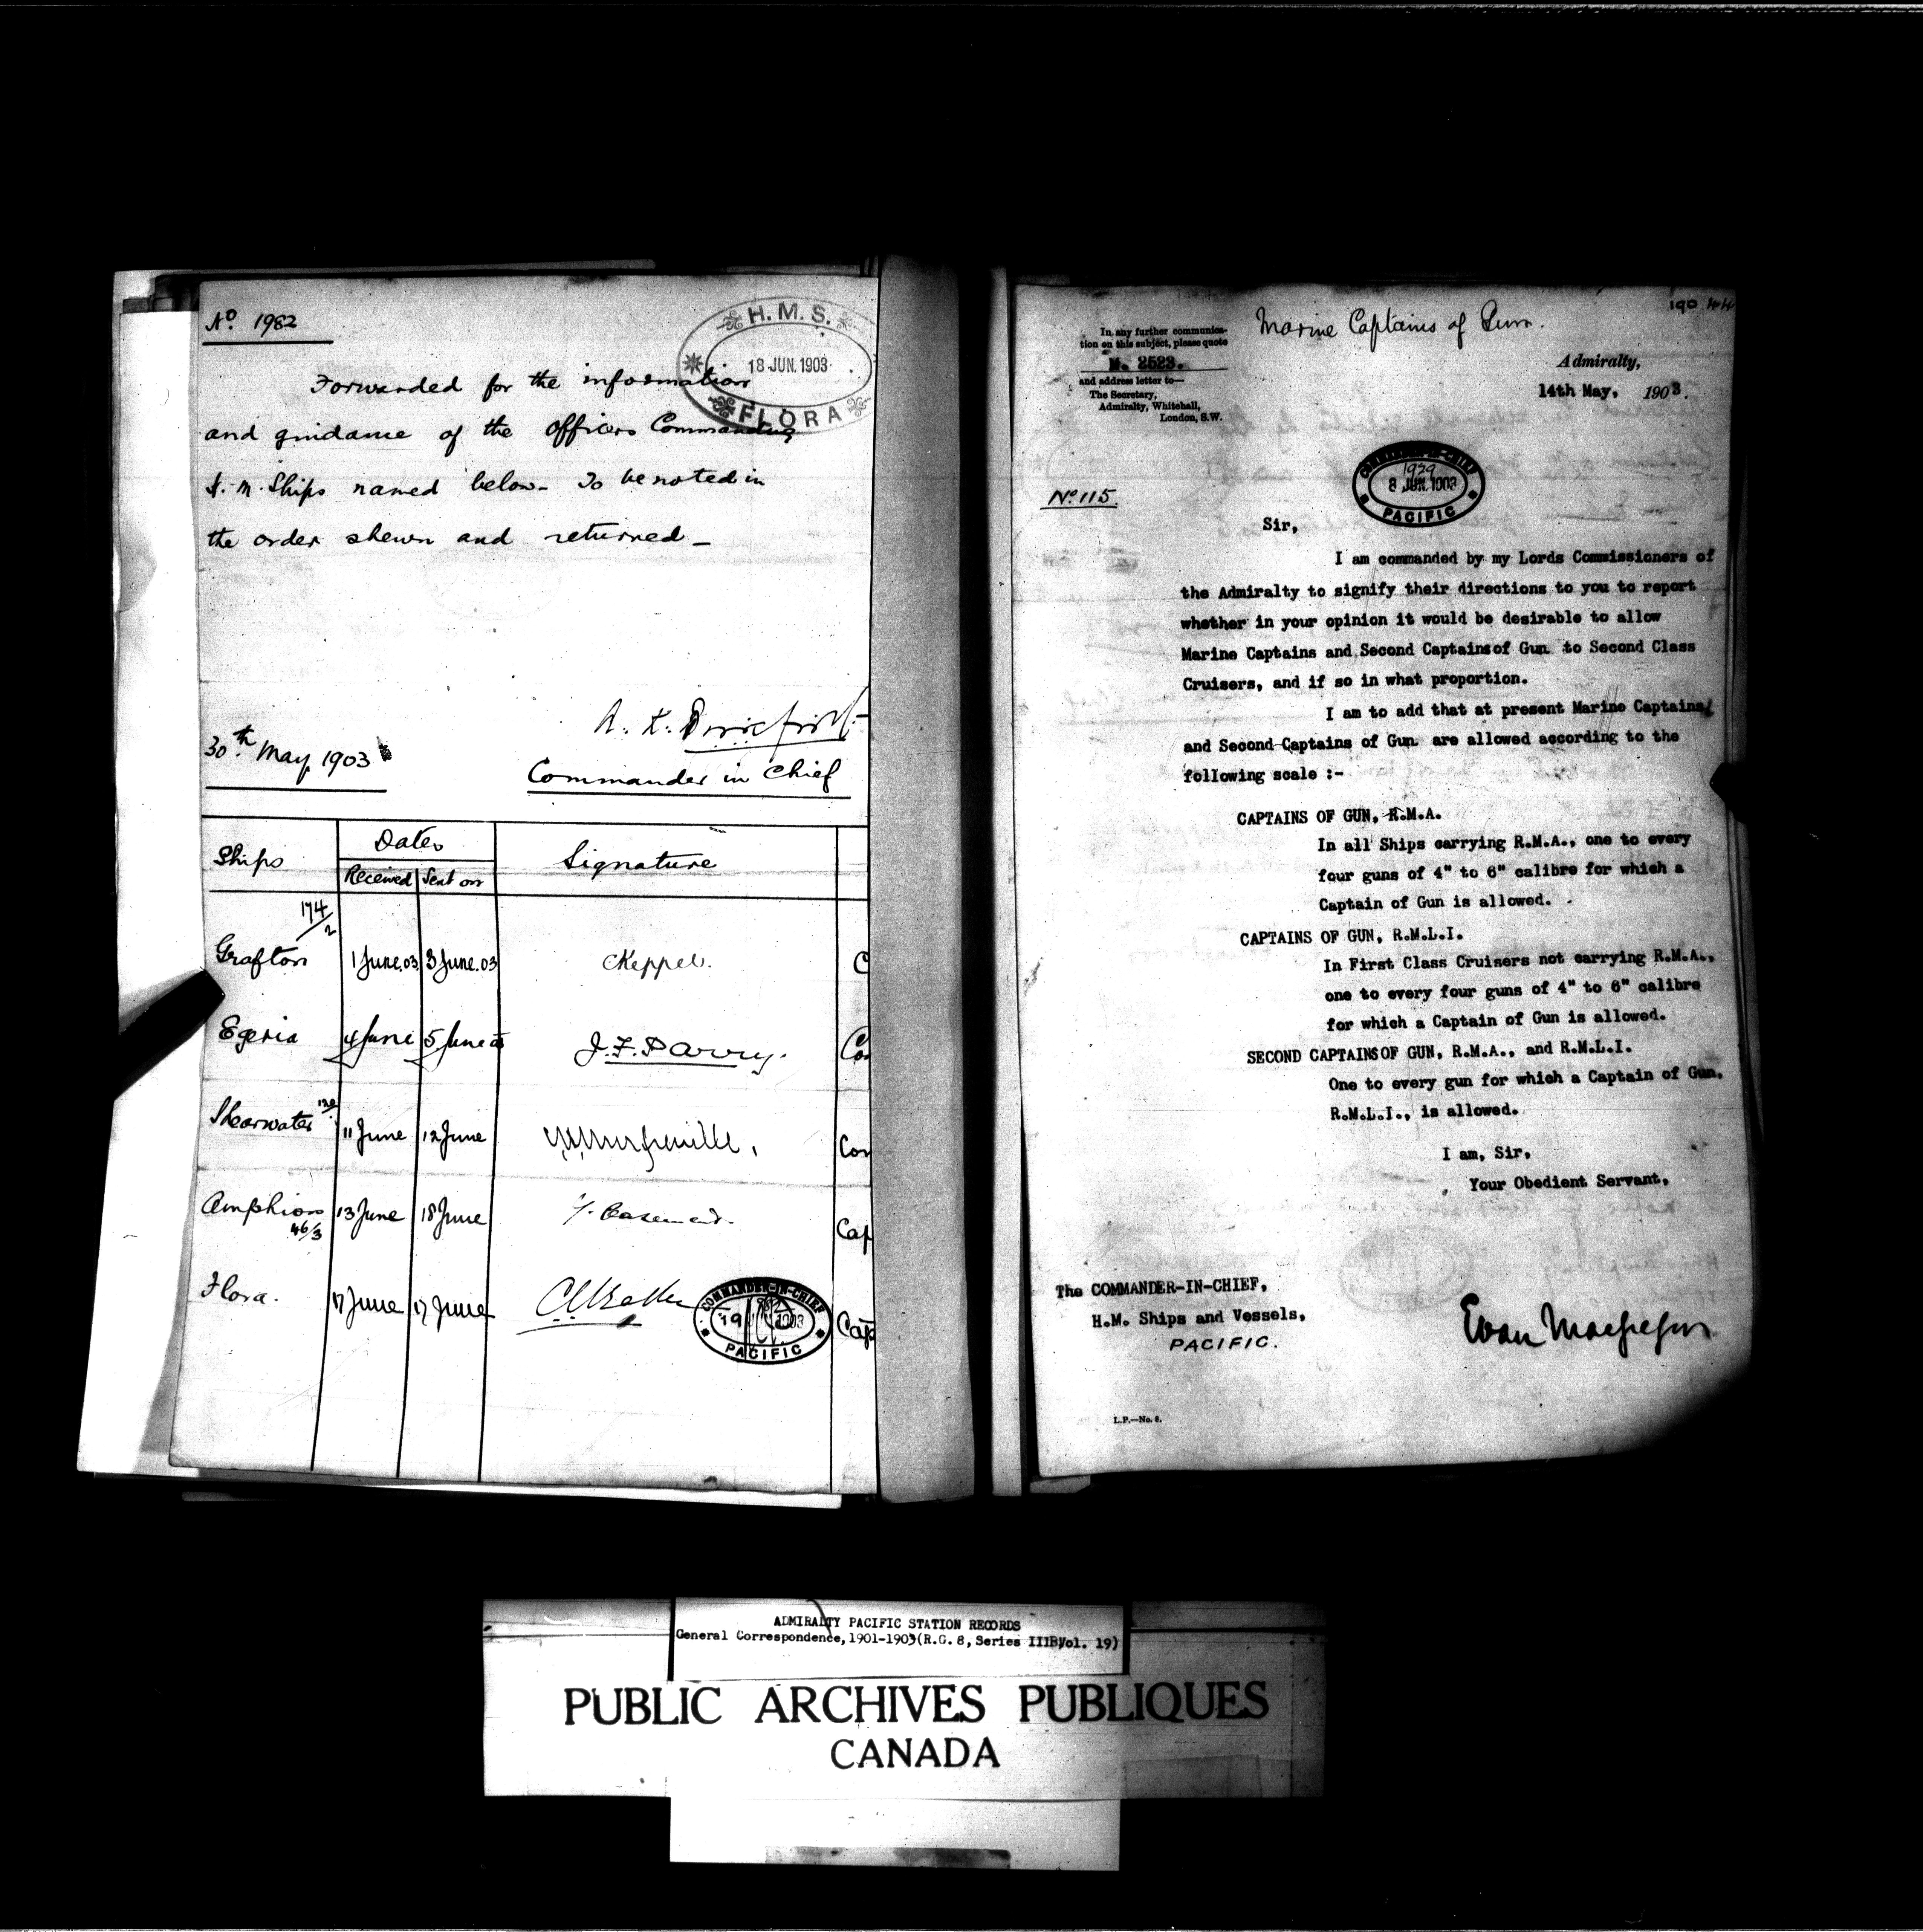 No. 1982
H.M.S.
18 JUN. 1903
FLORA
Forwarded for the information
and guidance of the Officers Commanding
H.M. Ships named below. To be noted in
the order shewn and returned –
30th May, 1903
Commander in Chief
Ships
Dates
Received
Sent on
Signature
174/2
Grafton
1 June. 03
3 June. 03
CKeppel.
C
Egeria
4 June
5 June
J. F. Parry.
Co
Shearwater
11 June
12 June
Com
Amphion
46/3
13 June
18 June
J. Casement.
Cap
Flora.
17 June
17 June
COMMANDER-IN-CHIEF
19
1903
PACIFIC
Cap
190
Marine Captains of Gun.
In any further communica-
tion on this subject, please quote
N. 2523.
and address letter to—
The Secretary,
Admiralty, Whitehall,
London, S.W.
Admiralty,
14th May, 1903.
COMMANDER-IN-CHIEF
1929
8 JUN. 1903
PACIFIC
No. 115.
Sir,
I am commanded by my Lords Commissioners of
the Admiralty to signify their directions to you to report
whether in your opinion it would be desirable to allow
Marine Captains and Second Captains of Gun to Second Class
Cruisers, and if so in what proportion.
I am to add that at present Marine Captains
and Second Captains of Gun are allowed according to the
following scale :-
CAPTAINS OF GUN, R.M.A.
In all Ships carrying R.M.A., one to every
four guns of 4" to 6" calibre for which a
Captain of Gun is allowed.
CAPTAINS OF GUN, R.M.L.I.
In First Class Cruisers not carrying R.M.A.,
one to every four guns of 4" to 6" calibre
for which a Captain of Gun is allowed.
SECOND CAPTAINS OF GUN, R.M.A., and R.M.L.I.
One to every gun for which a Captain of Gun,
R.M.L.I., is allowed.
I am, Sir,
Your Obedient Servant,
The COMMANDER-IN-CHIEF,
H.M. Ships and Vessels,
PACIFIC.
Evan Macgregor
L.P.—No. 8.
ADMIRALTY PACIFIC STATION RECORDS
General Correspondence, 1901-1903 (R.G. 8, Series IIIB, Vol. 19)
PUBLIC ARCHIVES PUBLIQUES
CANADA